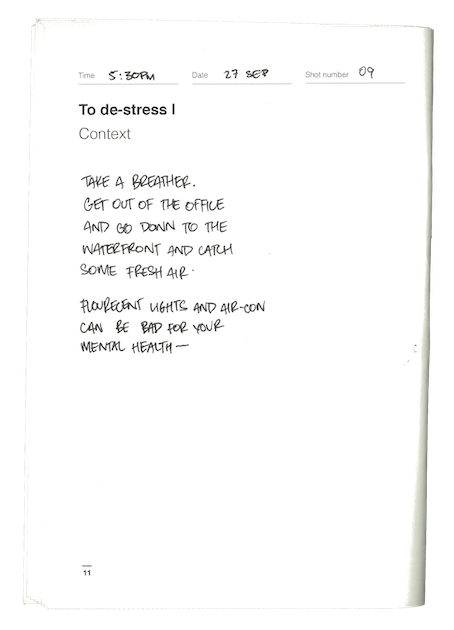 Time 5:30PM Date 27 SEP Shot number 09
To de-stress I
Context
TAKE A BREATHER.
GET OUT OF THE OFFICE
AND GO DOWN TO THE
WATERFRONT AND CATCH
SOME FRESH AIR.
FLOURECENT LIGHTS AND AIR-CON
CAN BE BAD FOR YOUR
MENTAL HEALTH —
11